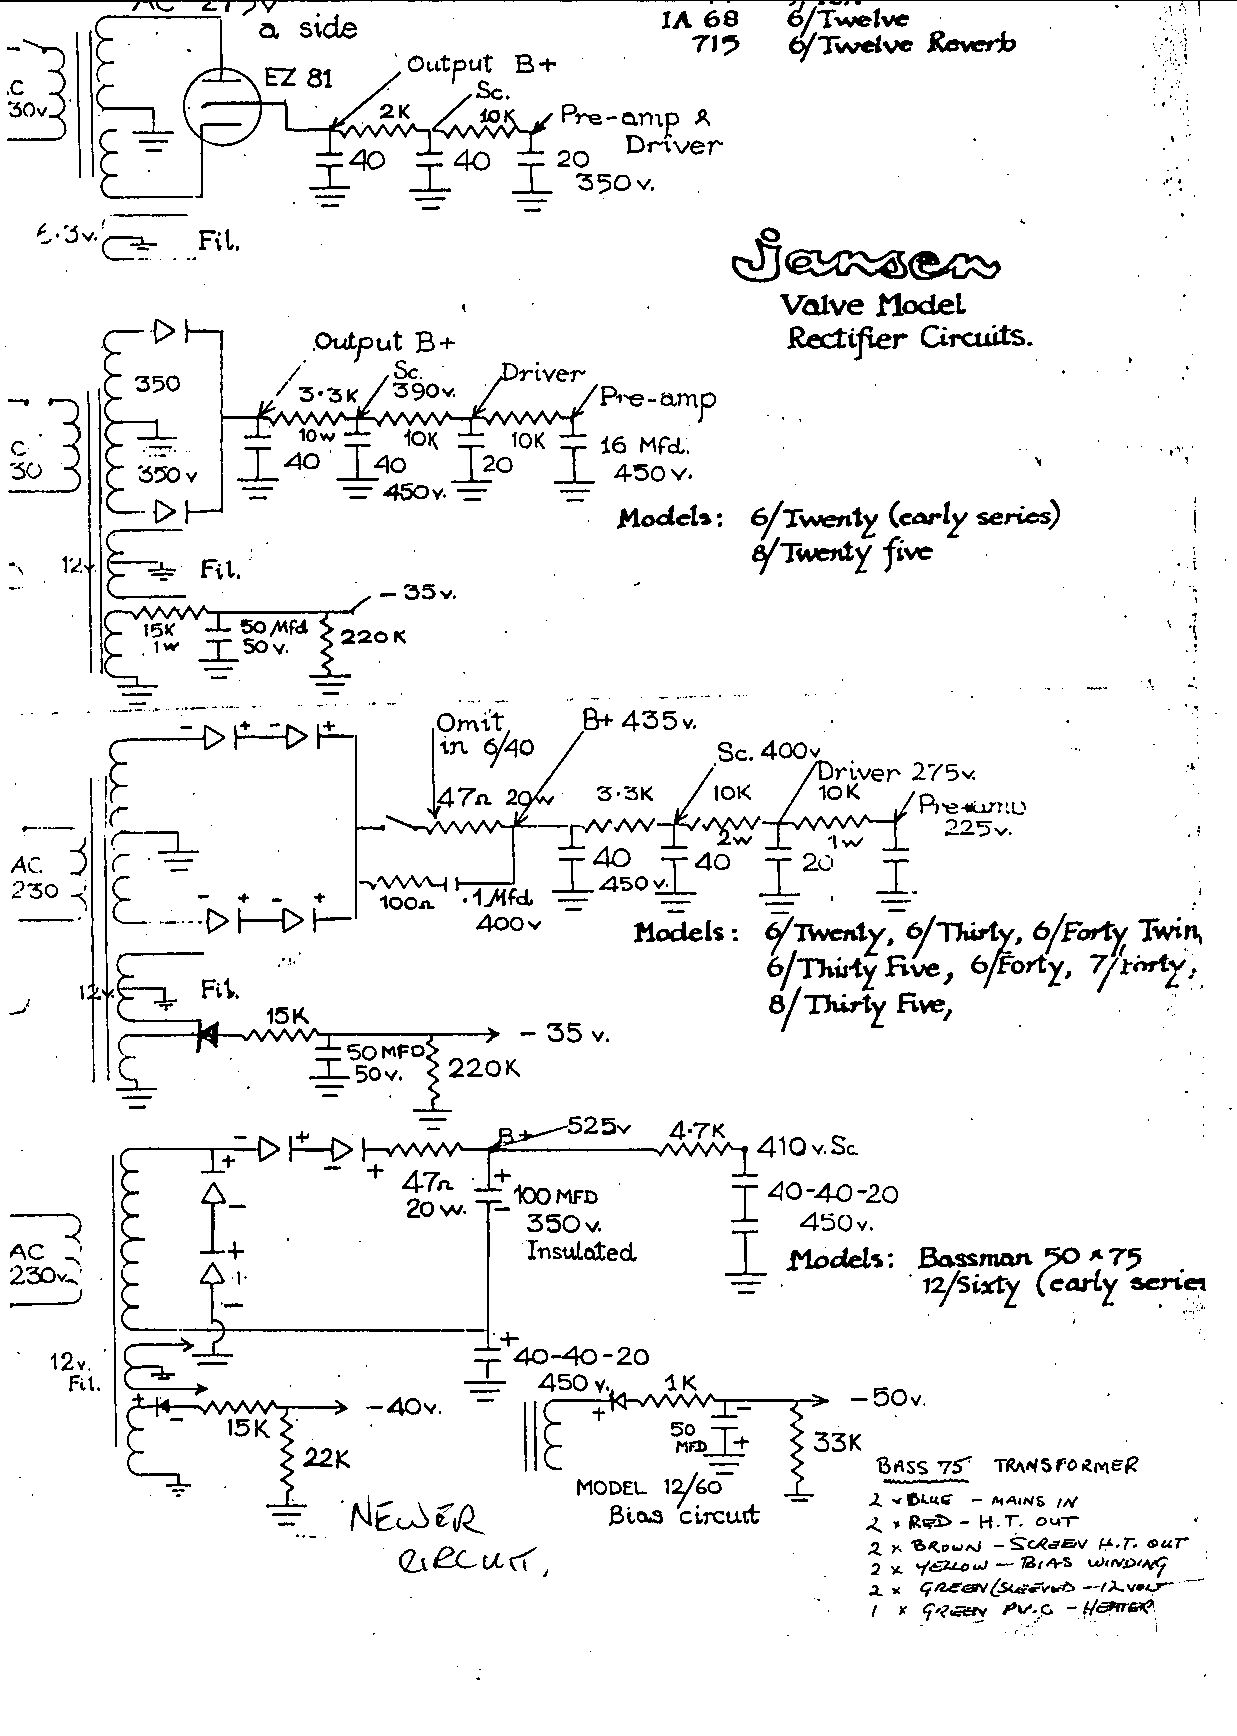 a side
IA 68 6/Twelve
715 6/Twelve Reverb
EZ 81
Output B+
Sc.
2K
10K
Pre-amp &
Driver
30v
40
40
20
350v.
6.3v.
Fil.
jansen
Valve Model
Rectifier Circuits.
Output B+
350
Sc.
390v.
Driver
3.3K
Pre-amp
10w
10K
10K
16 Mfd.
C
30
350v
40
40
20
450v.
450v.
Models: 6/Twenty (early series)
8/Twenty five
12v.
Fil.
-35v.
15K
1w
50 Mfd
50v.
220K
Omit
in 6/40
B+ 435v.
Sc. 400v
Driver 275v.
47Ω 20w
3.3K
10K
10K
Pre-amp
225v.
2w
1w
AC
230
40
450v.
40
20
100Ω
.1 Mfd.
400v
Models: 6/Twenty, 6/Thirty, 6/Forty Twin,
6/Thirty Five, 6/Forty, 7/Forty,
8/Thirty Five,
12v.
Fil.
15K
-35 v.
50 MFD
50v.
220K
B+
525v
4.7K
410 v. Sc.
47Ω
20w.
100 MFD
350v.
Insulated
40-40-20
450v.
AC
230v.
Models: Bassman 50 & 75
12/Sixty (early series
12v.
Fil.
40-40-20
450v.
-40v.
15K
22K
1K
-50v.
50
MFD
33K
MODEL 12/60
Bias circuit
NEWER
CIRCUIT.
BASS 75 TRANSFORMER
2 x BLUE - MAINS IN
2 x RED - H.T. OUT
2 x BROWN - SCREEN H.T. OUT
2 x YELLOW - BIAS WINDING
2 x GREEN (SLEEVED - 12 VOLT
1 x GREEN P.V.C - HEATER